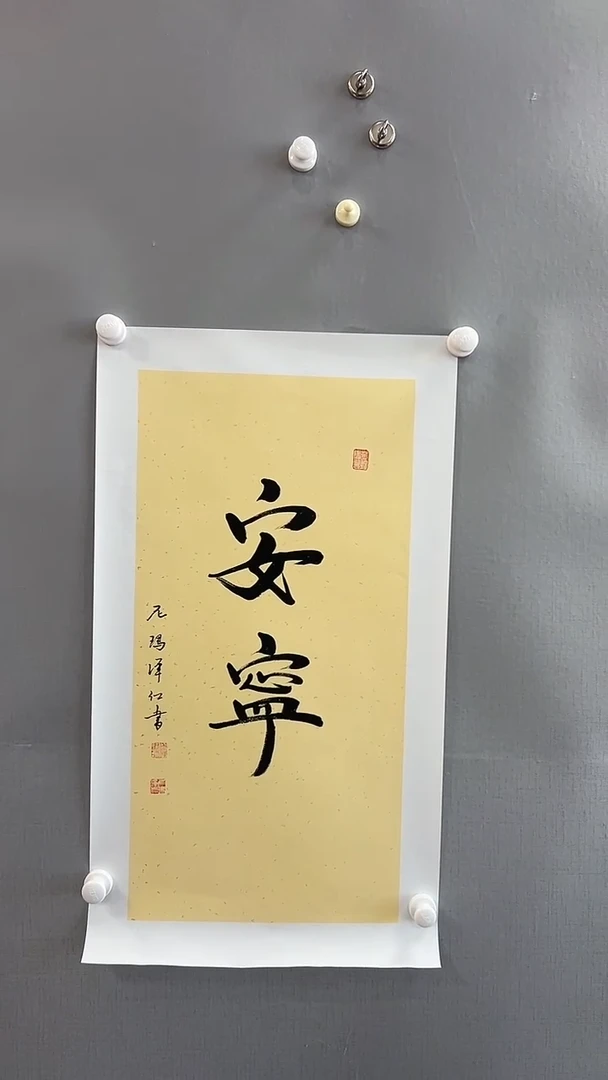 安寧
尼瑪澤仁書